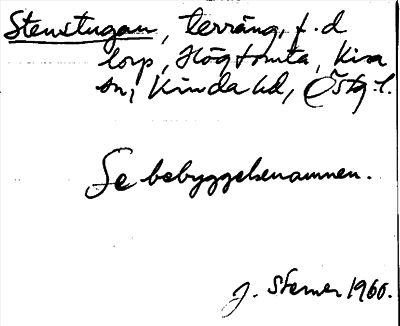 Stenstugan, terräng, f.d
torp, Högtomta, Kisa
sn, Kinda hd, Östg.l.
Se bebyggelsenamnen.
J. Sterner 1960.